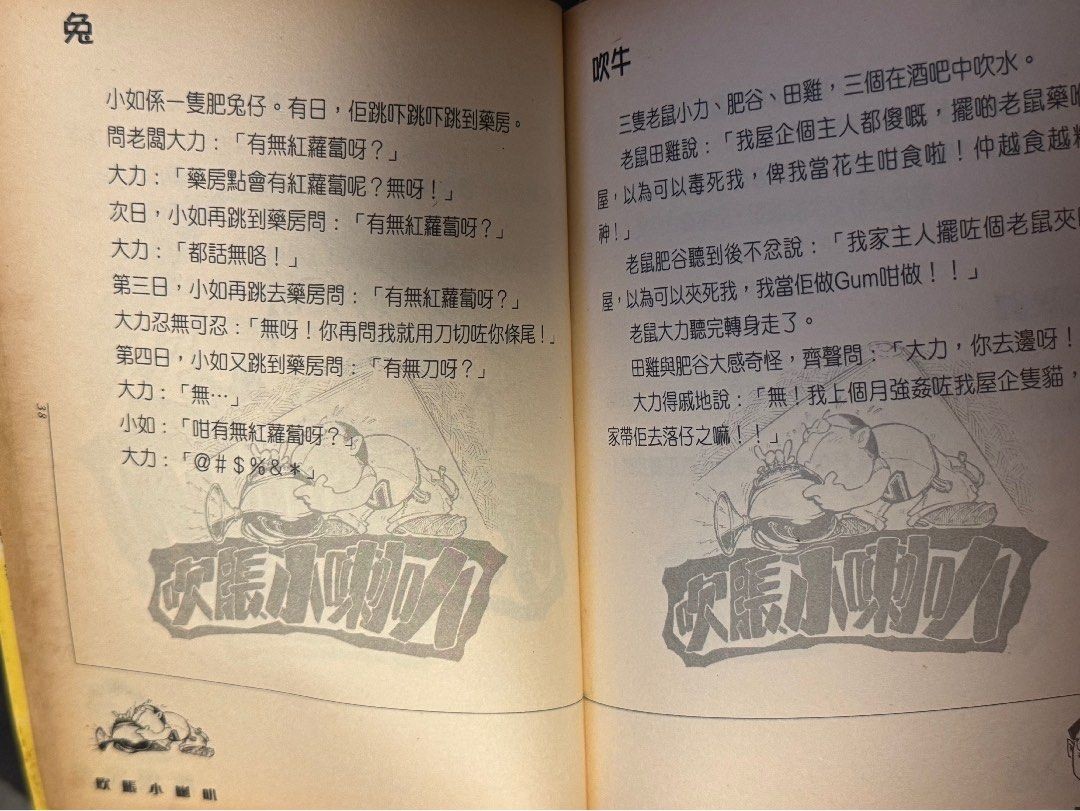 兔
小如係一隻肥兔仔。有日，佢跳吓跳吓跳到藥房。
問老闆大力：「有無紅蘿蔔呀？」
大力：「藥房點會有紅蘿蔔呢？無呀！」
次日，小如再跳到藥房問：「有無紅蘿蔔呀？」
大力：「都話無咯！」
第三日，小如再跳去藥房問：「有無紅蘿蔔呀？」
大力忍無可忍：「無呀！你再問我就用刀切咗你條尾！」
第四日，小如又跳到藥房問：「有無刀呀？」
大力：「無…」
小如：「咁有無紅蘿蔔呀？」
大力：「@#$%&*」
38
吹脹小喇叭
吹脹小喇叭
吹牛
三隻老鼠小力、肥谷、田雞，三個在酒吧中吹水。
老鼠田雞說：「我屋企個主人都傻嘅，擺啲老鼠藥
屋，以為可以毒死我，俾我當花生咁食啦！仲越食越
神！」
老鼠肥谷聽到後不忿說：「我家主人擺咗個老鼠夾
屋，以為可以夾死我，我當佢做Gum咁做！！」
老鼠大力聽完轉身走了。
田雞與肥谷大感奇怪，齊聲問：「大力，你去邊呀！
大力得戚地說：「無！我上個月強姦咗我屋企隻貓，
家帶佢去落仔之嘛！！」
吹脹小喇叭